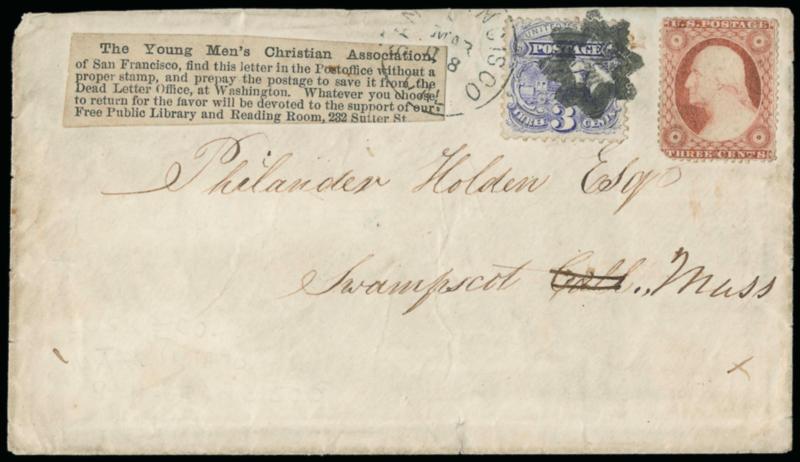 The Young Men's Christian Association,
of San Francisco, find this letter in the Postoffice without a
proper stamp, and prepay the postage to save it from the
Dead Letter Office, at Washington. Whatever you choose
to return for the favor will be devoted to the support of our
Free Public Library and Reading Room, 232 Sutter St.
POSTAGE
THREE 3 CENTS
U.S. POSTAGE
THREE CENTS
Philander Holden Esq
Swampscot Call., Mass